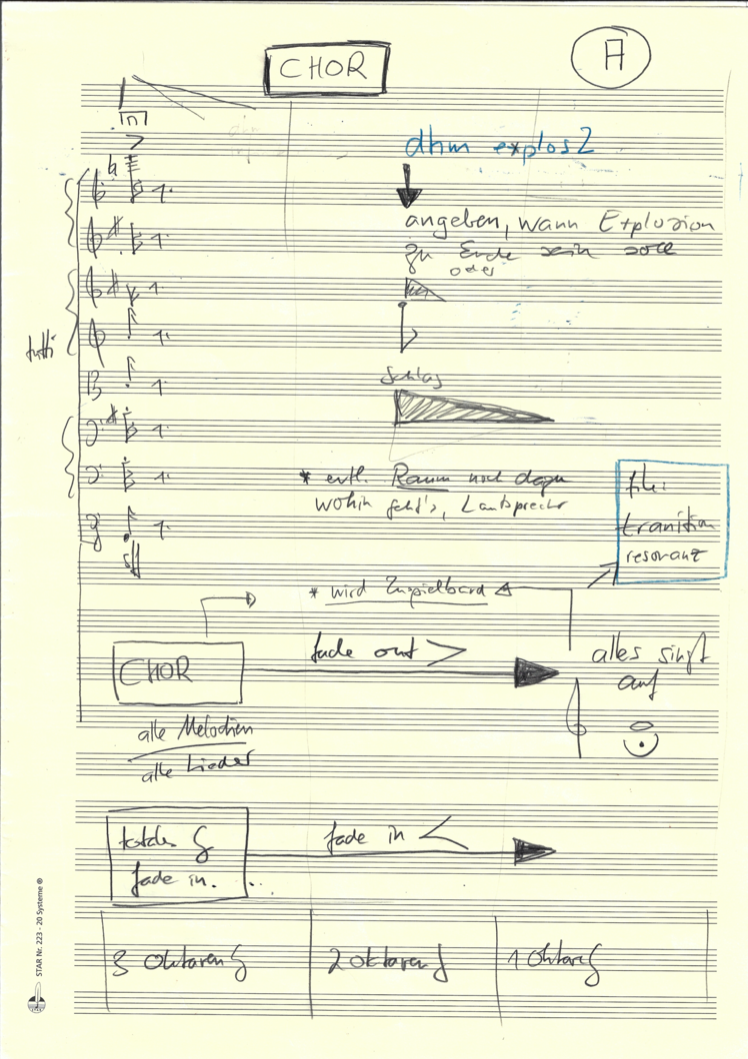 CHOR
A
dhm explos2
angeben, wann Explosion
zu Ende sein soll
oder
tutti
Schlag
* evtl. Raum noch dazu
wohin geht's, Lautsprecher
file:
tranition
resonanz
sff
* wird Zuspielband
CHOR
fade out >
alles singt
auf
alle Melodien
alle Lieder
fade in <
fade in. ..
3 Oktaven G
2 oktaven G
1 Oktave G
STAR Nr. 223 - 20 Systeme ®